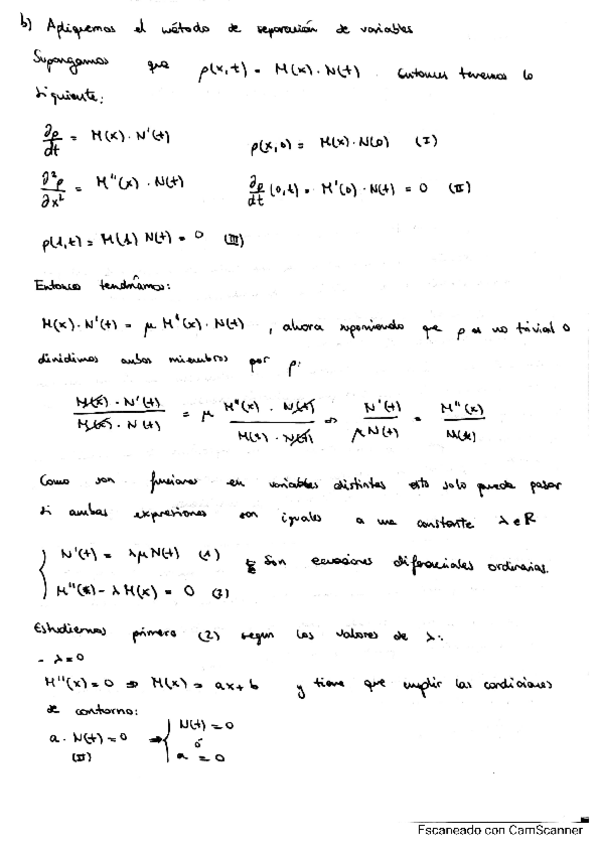 b) Apliquemos el método de separación de variables
Supongamos que ρ(x,t) = M(x)·N(t). Entonces tenemos lo
siguiente:
∂ρ/dt = M(x)·N'(t)    ρ(x,0) = M(x)·N(0) (I)
∂²ρ/∂x² = M''(x)·N(t)    ∂ρ/dt (0,t) = M'(0)·N(t) = 0 (II)
ρ(1,t) = M(1) N(t) = 0 (III)
Entonces tendríamos:
M(x)·N'(t) = μ M''(x)·N(t), ahora suponiendo que ρ es no trivial o
dividimos ambos miembros por ρ:
M(x)·N'(t) / M(x)·N(t) = μ M''(x)·N(t) / M(x)·N(t) ⇒ N'(t) / μN(t) = M''(x) / M(x)
Como son funciones en variables distintas esto solo puede pasar
si ambas expresiones son iguales a una constante λ∈R
{ N'(t) = λμN(t) (1) Son ecuaciones diferenciales ordinarias.
M''(x) - λM(x) = 0 (2)
Estudiemos primero (2) según los valores de λ:
- λ=0
M''(x) = 0 ⇒ M(x) = ax+b y tiene que cumplir las condiciones
de contorno:
a·N(t) = 0 ⇒ { N(t) = 0
(II) ó
a = 0
Escaneado con CamScanner